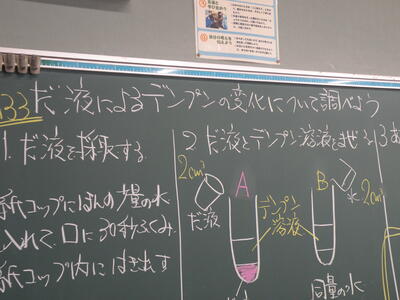 33 だ液によるデンプンの変化について調べよう
1. だ液を採取する
紙コップにほんの少量の水
入れて、口に30秒ふくみ、
紙コップ内にはき出す
2 だ液とデンプン溶液をまぜる
2cm³
だ液
A
デンプン
溶液
B
2cm³
水
同量の水
3 あ